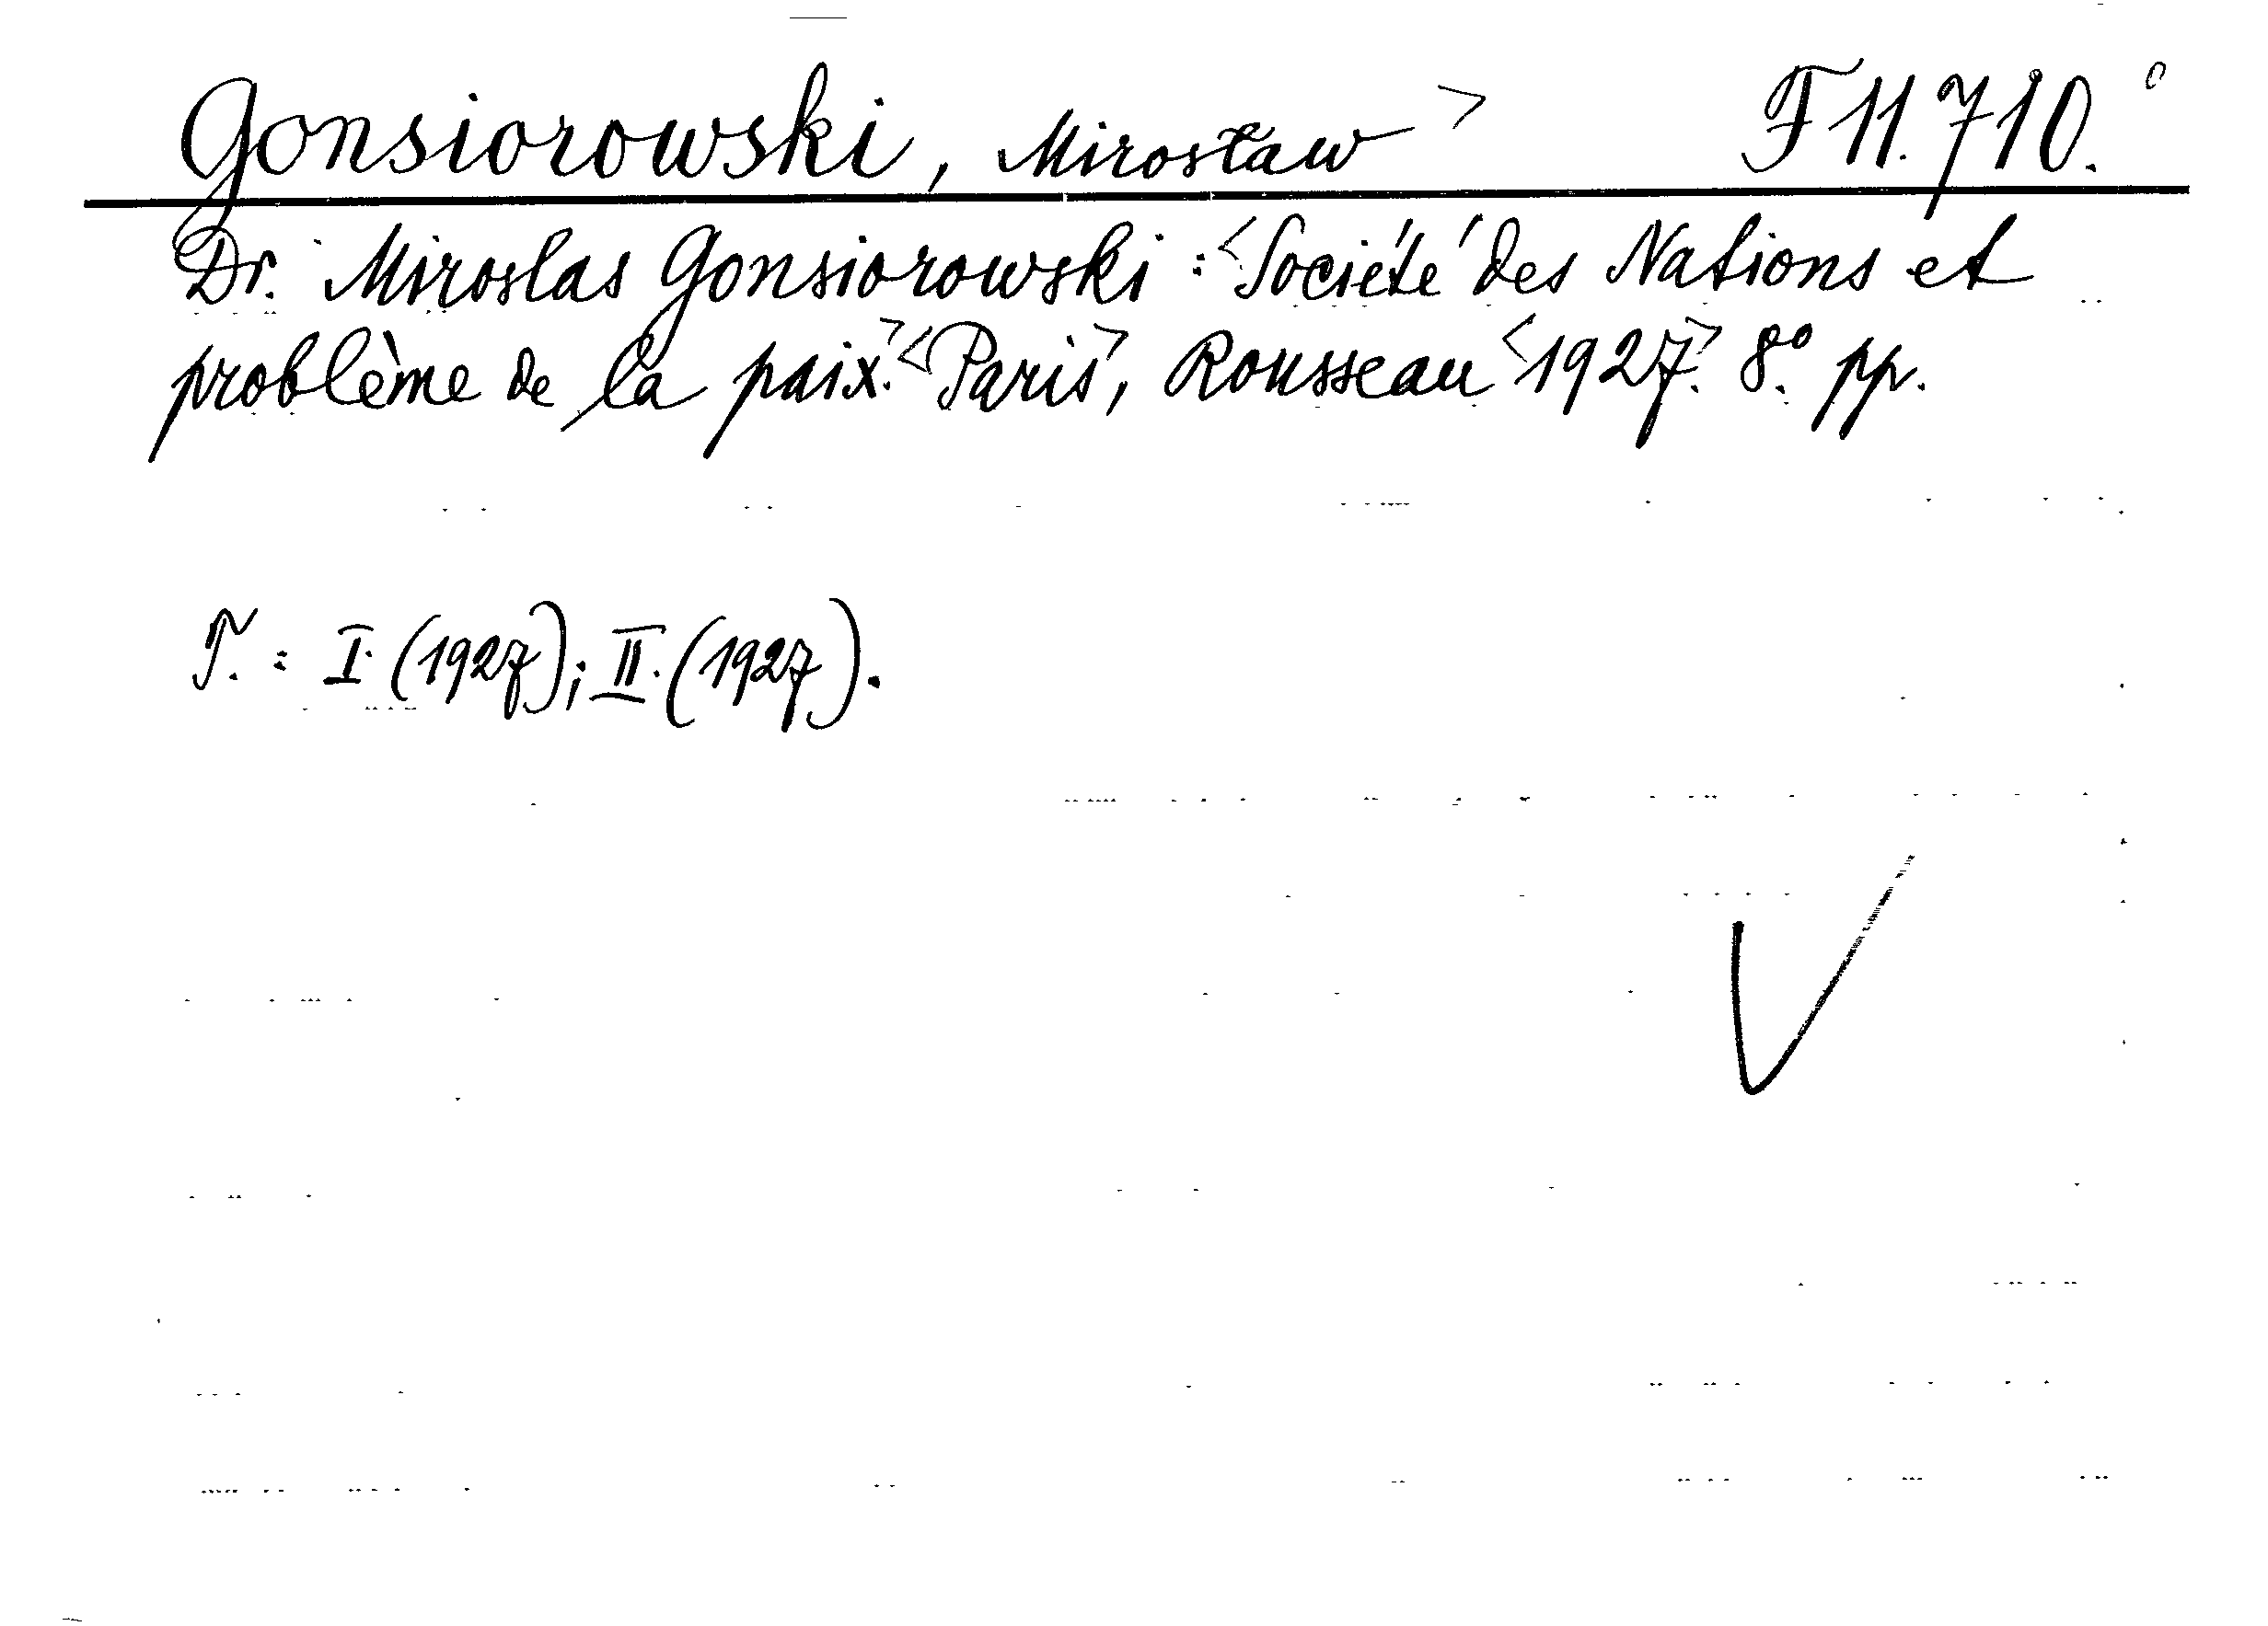 Gonsiorowski, Mirosław > F 11.710.°
Dr. Miroslas Gonsiorowski: <Société des Nations et
problème de la paix.> <Paris>, Rousseau <1927.> 8.° pp.
T.: I. (1927); II. (1927).